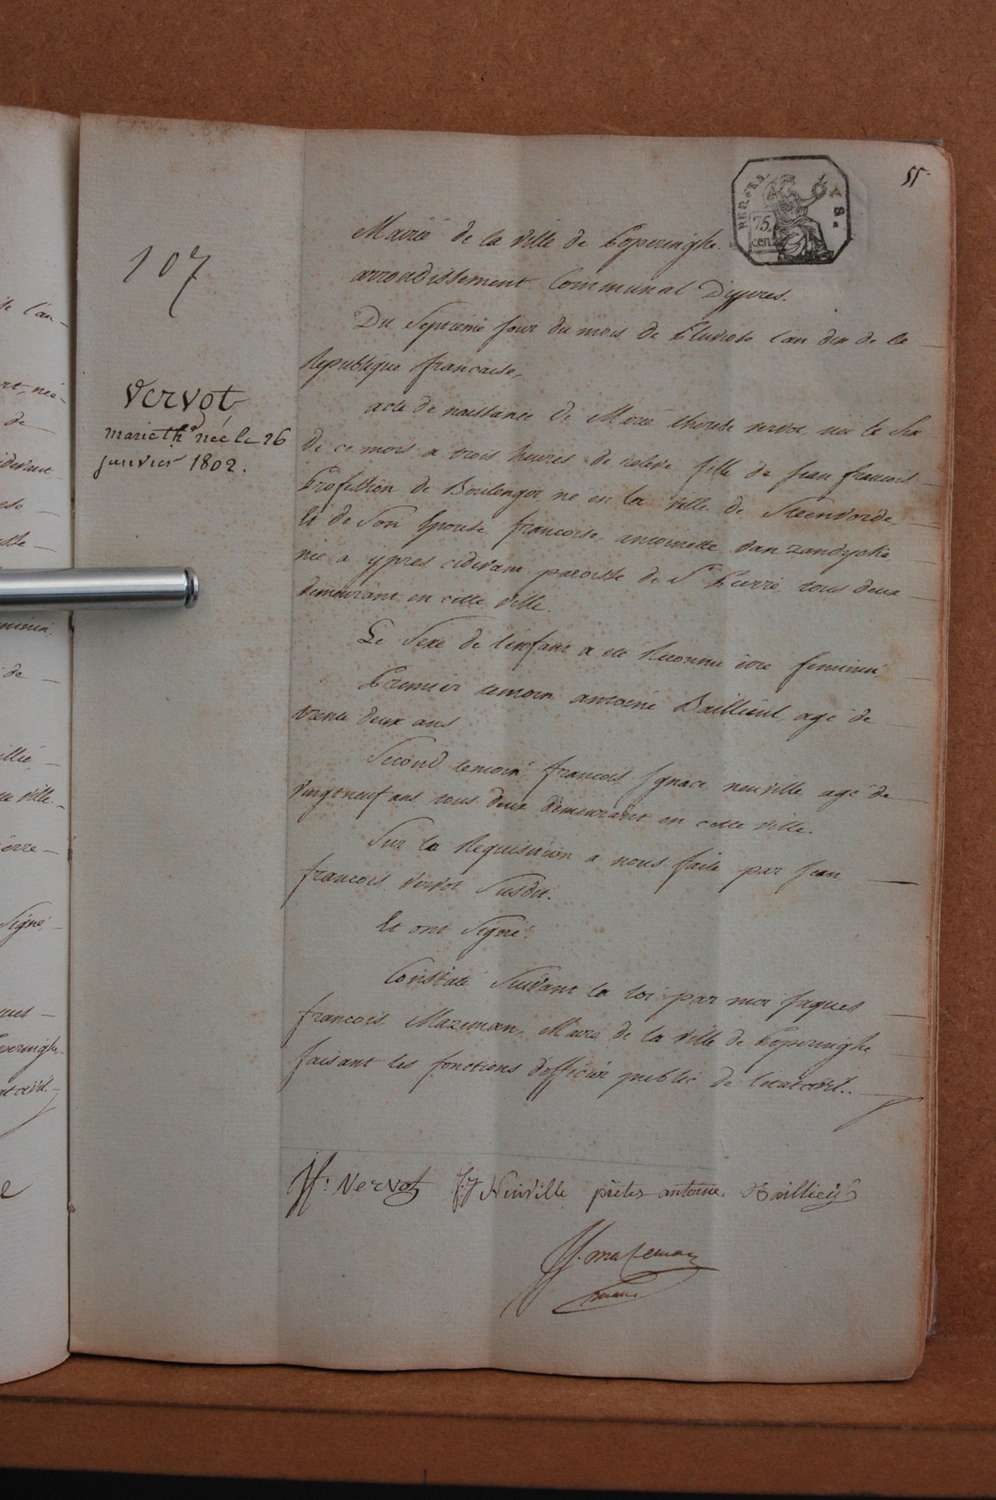 55
75
cen
107
Vervot
marie th.e née le 26
janvier 1802.
Mairie de la ville de Poperinghe
arrondissement Communal D'ypres.
Du Septieme jour du mois de Pluviose l'an dix de la
Republique francaise,
acte de naissance de Marie therese vervot née le Six
de ce mois a trois heures de relevé fille de Jean francois
Profession de Boulenger né en la ville de Steenvorde
Et de Son Epouse francoise antoinette vanzandycke
née a ypres cidevant paroisse de St Pierre tous deux
demeurant en cette ville.
Le Sexe de l'enfant a eté Reconnu etre feminin
Premier temoin antoine Baillieul agé de
trente deux ans
Second temoin francois Ignace neuville agé de
vingtneuf ans tous deux demeurant en cette ville.
Sur la Requisition a nous faite par Jean
francois Vervot Susdit.
Et ont Signé.
Constaté Suivant la loi par moi Jaques
francois Mazeman, Maire de la ville de Poperinghe
faisant les fonctions d'officier public de l'etat civil.
JF: Vervot F:J Neuville pieter antone Baillieu
JJ. mazeman
maire